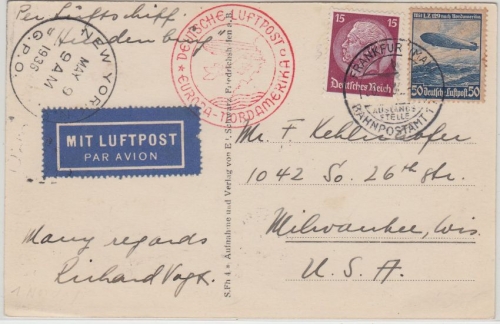 Per Luftschiff
Hindenburg
NEW YORK
MAY 9
9 AM
1936
G.P.O.
* DEUTSCHE LUFTPOST *
EUROPA - NORDAMERIKA
15 15
Deutsches Reich
Mit L.Z. 129 nach Nordamerika
50 Deutsche Luftpost 50
FRANKFURT (MAIN)
AUSTAUSCH
STELLE
BAHNPOSTAMT
MIT LUFTPOST
PAR AVION
Many regards
Richard Vogt.
S.Fh 4 • Aufnahme und Verlag von E. Schwarz, Friedrichshafen a. B.
Mr. F Kehlenhofer
1042 So. 26th Str.
Milwaukee, Wis.
U. S. A.